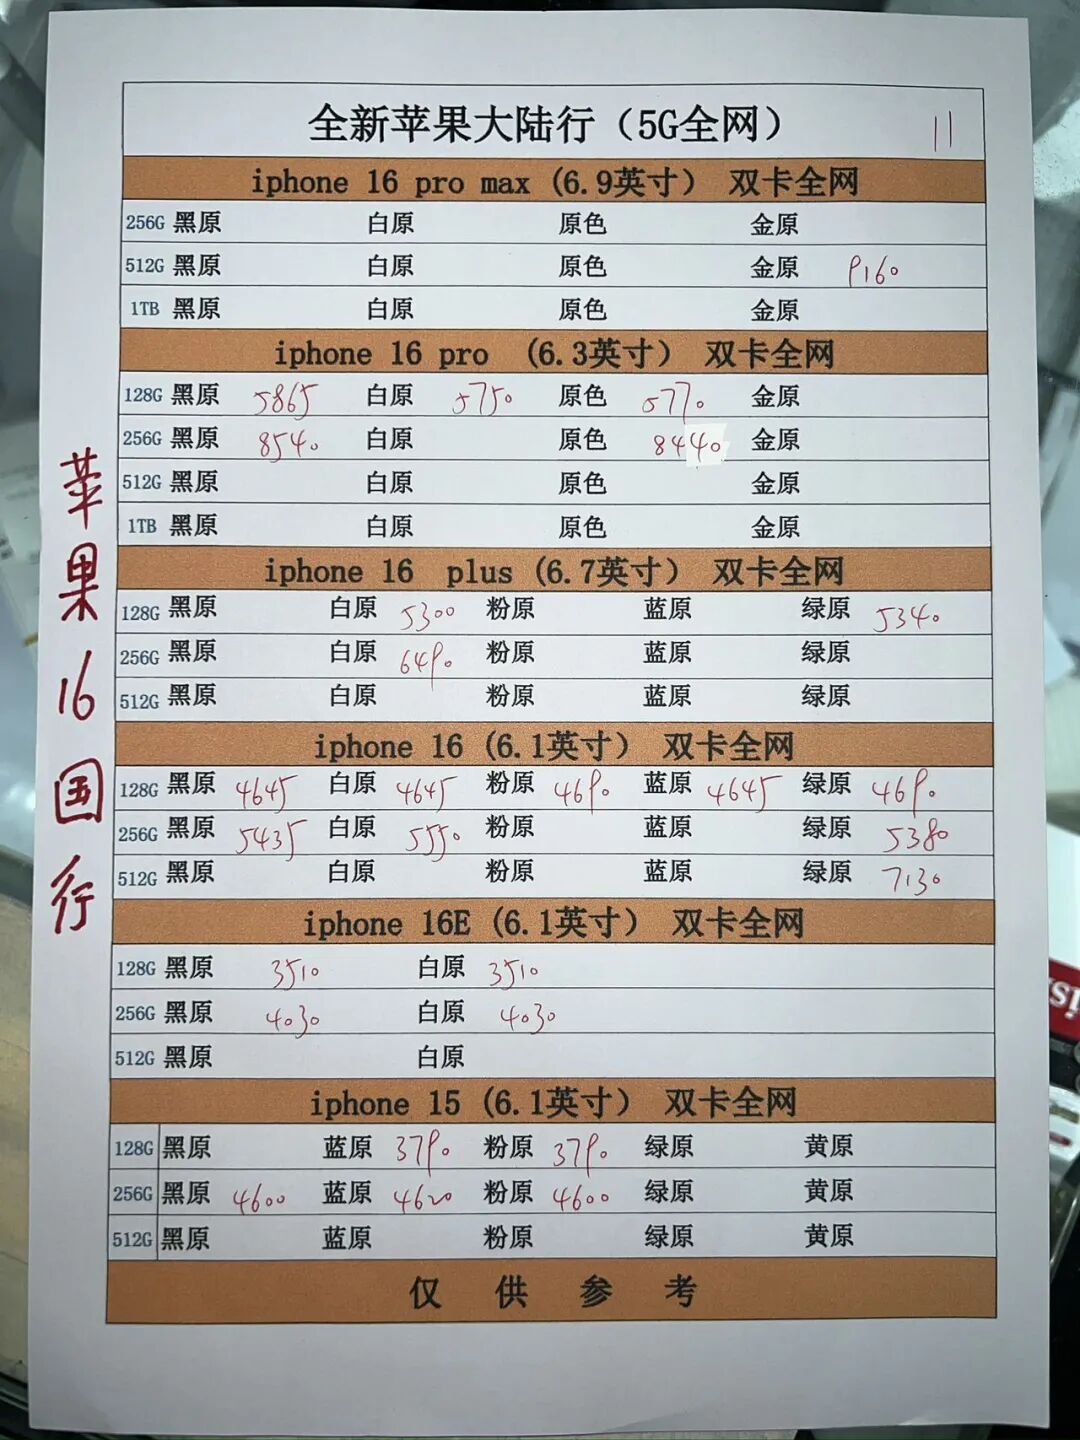 全新苹果大陆行（5G全网） 11
iphone 16 pro max (6.9英寸） 双卡全网
256G 黑原 白原 原色 金原
512G 黑原 白原 原色 金原 9160
1TB 黑原 白原 原色 金原
iphone 16 pro （6.3英寸） 双卡全网
128G 黑原 5865 白原 5750 原色 5770 金原
256G 黑原 8540 白原 原色 8440 金原
512G 黑原 白原 原色 金原
1TB 黑原 白原 原色 金原
iphone 16 plus (6.7英寸） 双卡全网
128G 黑原 白原 5300 粉原 蓝原 绿原 5340
256G 黑原 白原 6490 粉原 蓝原 绿原
512G 黑原 白原 粉原 蓝原 绿原
iphone 16 (6.1英寸） 双卡全网
128G 黑原 4645 白原 4645 粉原 4690 蓝原 4645 绿原 4690
256G 黑原 5435 白原 5550 粉原 蓝原 绿原 5380
512G 黑原 白原 粉原 蓝原 绿原 7130
iphone 16E (6.1英寸） 双卡全网
128G 黑原 3510 白原 3510
256G 黑原 4030 白原 4030
512G 黑原 白原
iphone 15 (6.1英寸） 双卡全网
128G 黑原 蓝原 3790 粉原 3790 绿原 黄原
256G 黑原 4600 蓝原 4620 粉原 4600 绿原 黄原
512G 黑原 蓝原 粉原 绿原 黄原
仅供参考
苹果16国行